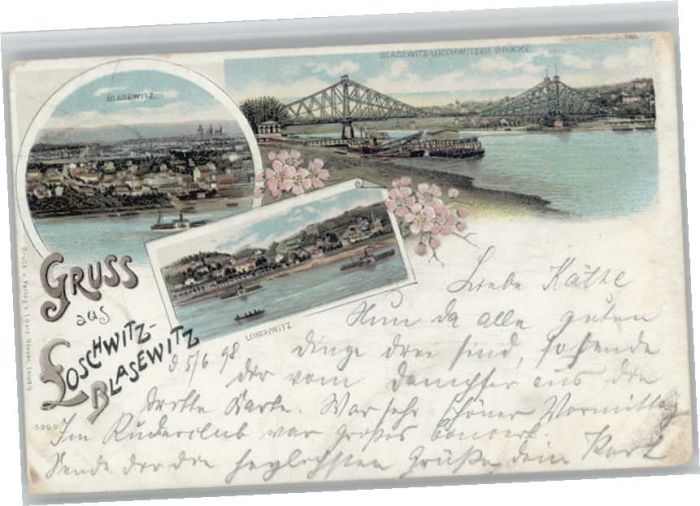 BLASEWITZ
BLASEWITZ-LOSCHWITZER BRÜCKE
GRUSS
aus
LOSCHWITZ-
BLASEWITZ
LOSCHWITZ
d. 5/6 98
Liebe Käthe
Nun da alle guten
Dinge drei sind, so sende
dir vom Dampfer aus die
dritte Karte. War sehr schöner Vormittag
Im Ruderclub war großes Concert.
Sende dir die herzlichsten Grüße, dein